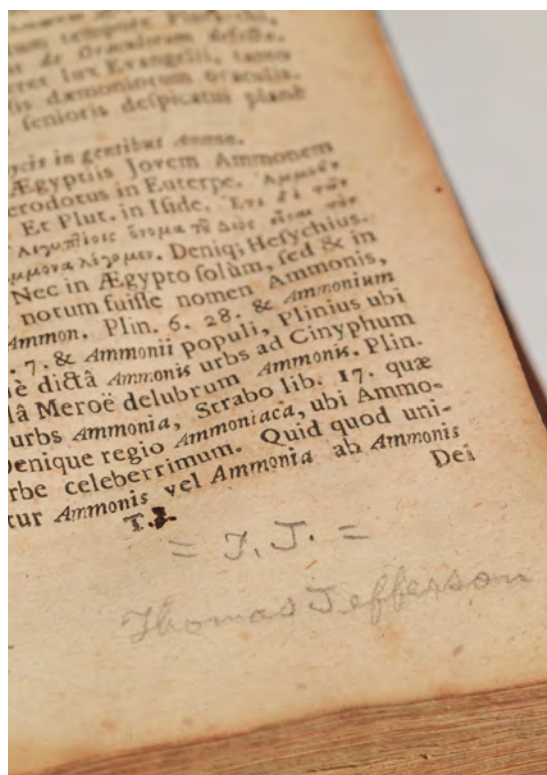 tempore
de Oraculorum defectu.
ret lux Evangelii, tanto
sis dæmoniorum oraculis.
senioris despicatui planè
in gentibus Ammon.
Ægyptiis Jovem Ammonem
erodotus in Euterpe.
Et Plut. in Iside. Ἔτι δὲ τῶν
Αἰγυπτίοις ὄνομα τῦ Διὸς εἶναι τὸν
μμονα λέγομεν. Deniq; Hesychius.
Nec in Ægypto solùm, sed & in
notum fuisse nomen Ammonis,
Ammon. Plin. 6. 28. & Ammonium
. 7. & Ammonii populi, Plinius ubi
è dictâ Ammonis urbs ad Cinyphum
lâ Meroë delubrum Ammonis. Plin.
urbs Ammonia, Strabo lib. 17. quæ
Denique regio Ammoniaca, ubi Ammo-
rbe celeberrimum. Quid quod uni-
tur Ammonis vel Ammonia ab Ammonis
Dei
T.J.
= T. J. =
Thomas Jefferson